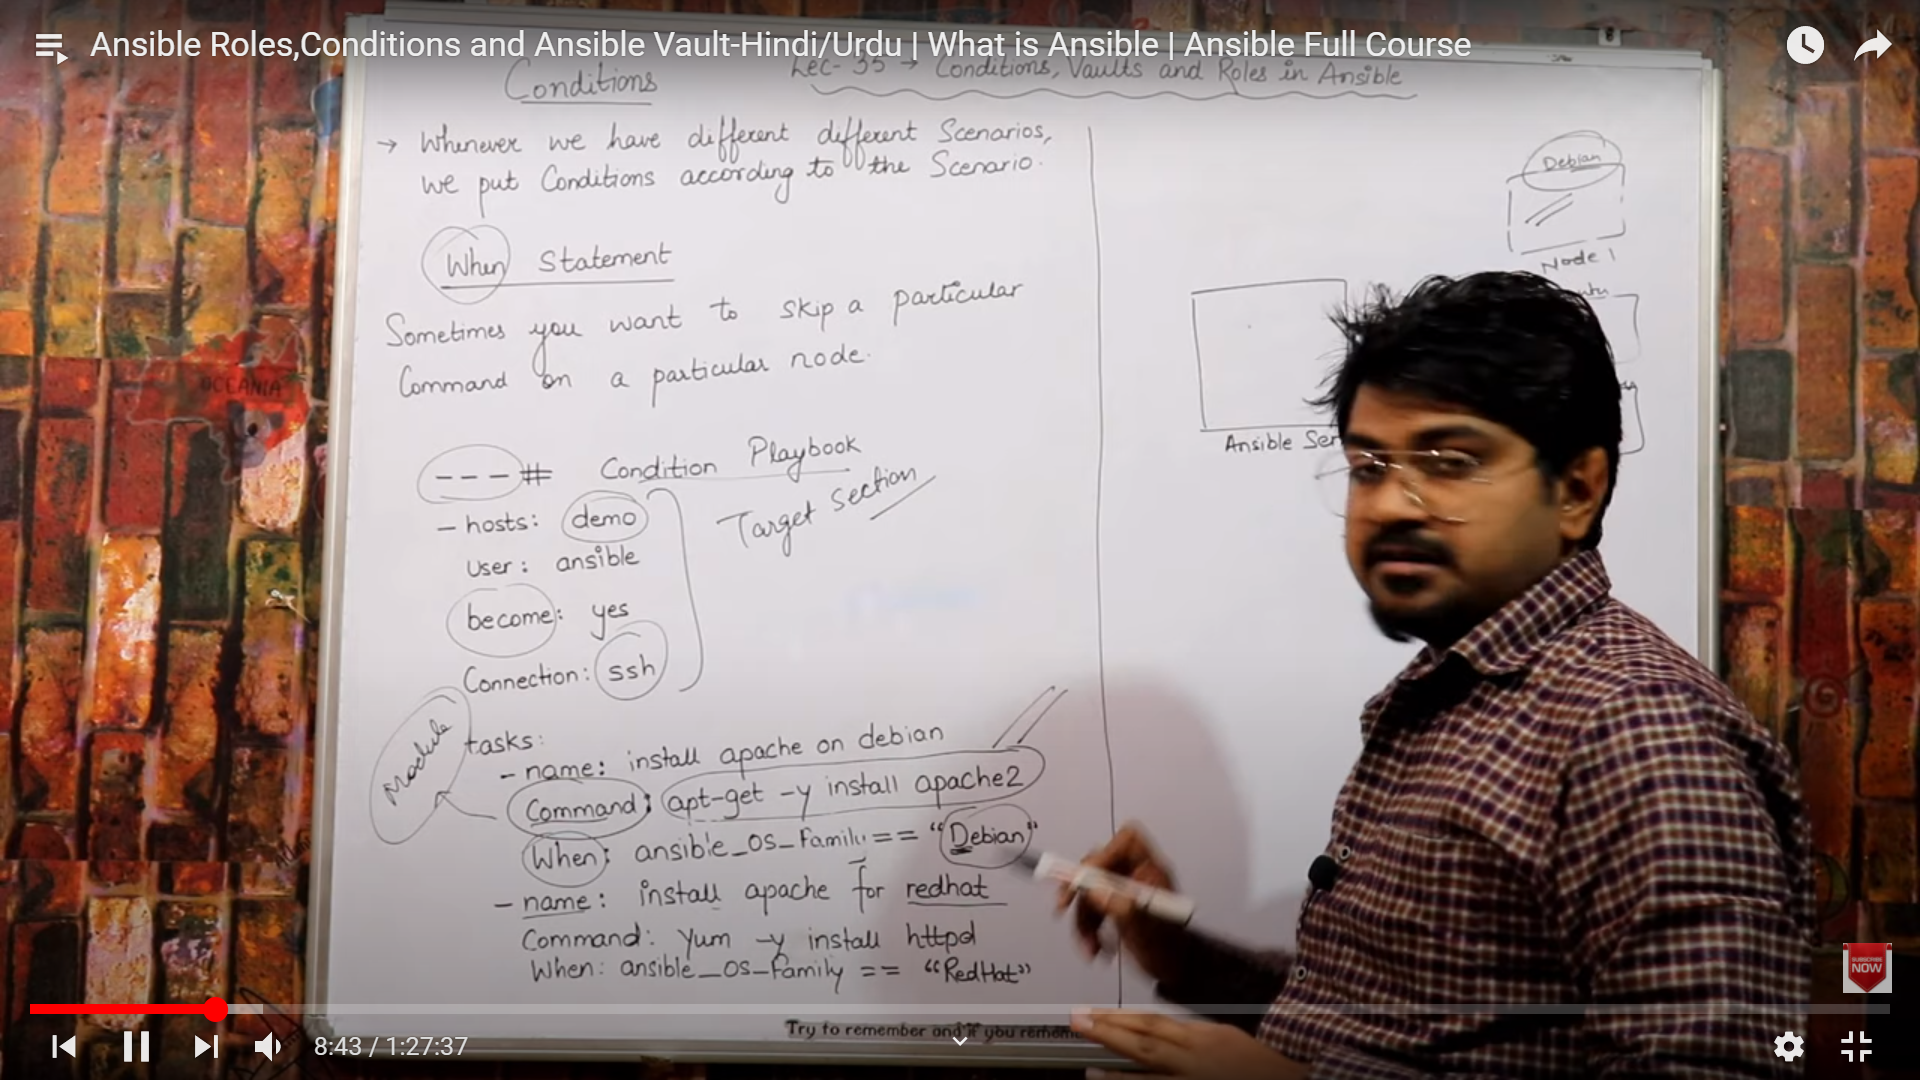 Ansible Roles,Conditions and Ansible Vault-Hindi/Urdu | What is Ansible | Ansible Full Course
Conditions
Lec- 35 → Conditions, Vaults and Roles in Ansible
→ Whenever we have different different Scenarios,
we put Conditions according to the Scenario.
When Statement
Sometimes you want to skip a particular
Command on a particular node.
--- # Condition Playbook
- hosts: demo
Target section
user: ansible
become: yes
Connection: ssh
Module
tasks:
- name: install apache on debian
Command: apt-get -y install apache2
When: ansible_os_Family == "Debian"
- name: install apache for redhat
Command: yum -y install httpd
When: ansible_os_Family == "RedHat"
Debian
Node 1
Ansible Ser
OCEANIA
Try to remember and if you remem
SUBSCRIBE
NOW
8:43 / 1:27:37